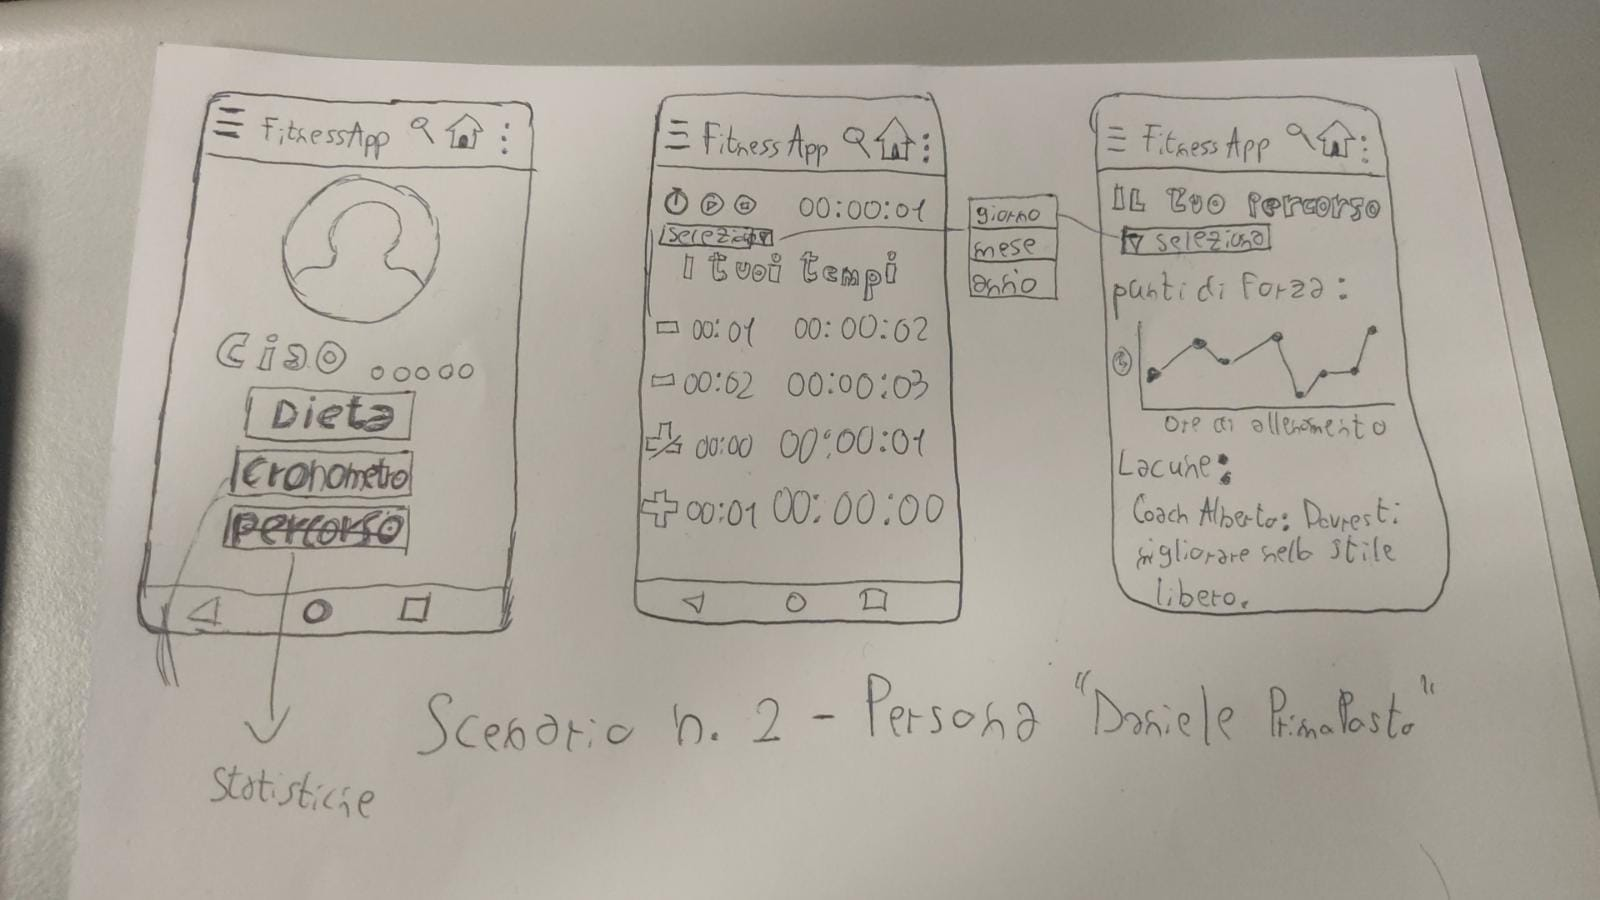 FitnessApp
Ciao
Dieta
Cronometro
percorso
Statistiche
FitnessApp
00:00:01
seleziona
I tuoi tempi
00:01 00:00:02
00:02 00:00:03
00:00 00:00:01
00:01 00:00:00
giorno
mese
anno
FitnessApp
IL tuo percorso
seleziona
punti di forza:
Ore di allenamento
Lacune:
Coach Alberto: Dovresti
migliorare nello stile
libero.
Scenario n. 2 - Persona "Daniele PrimaPasta"